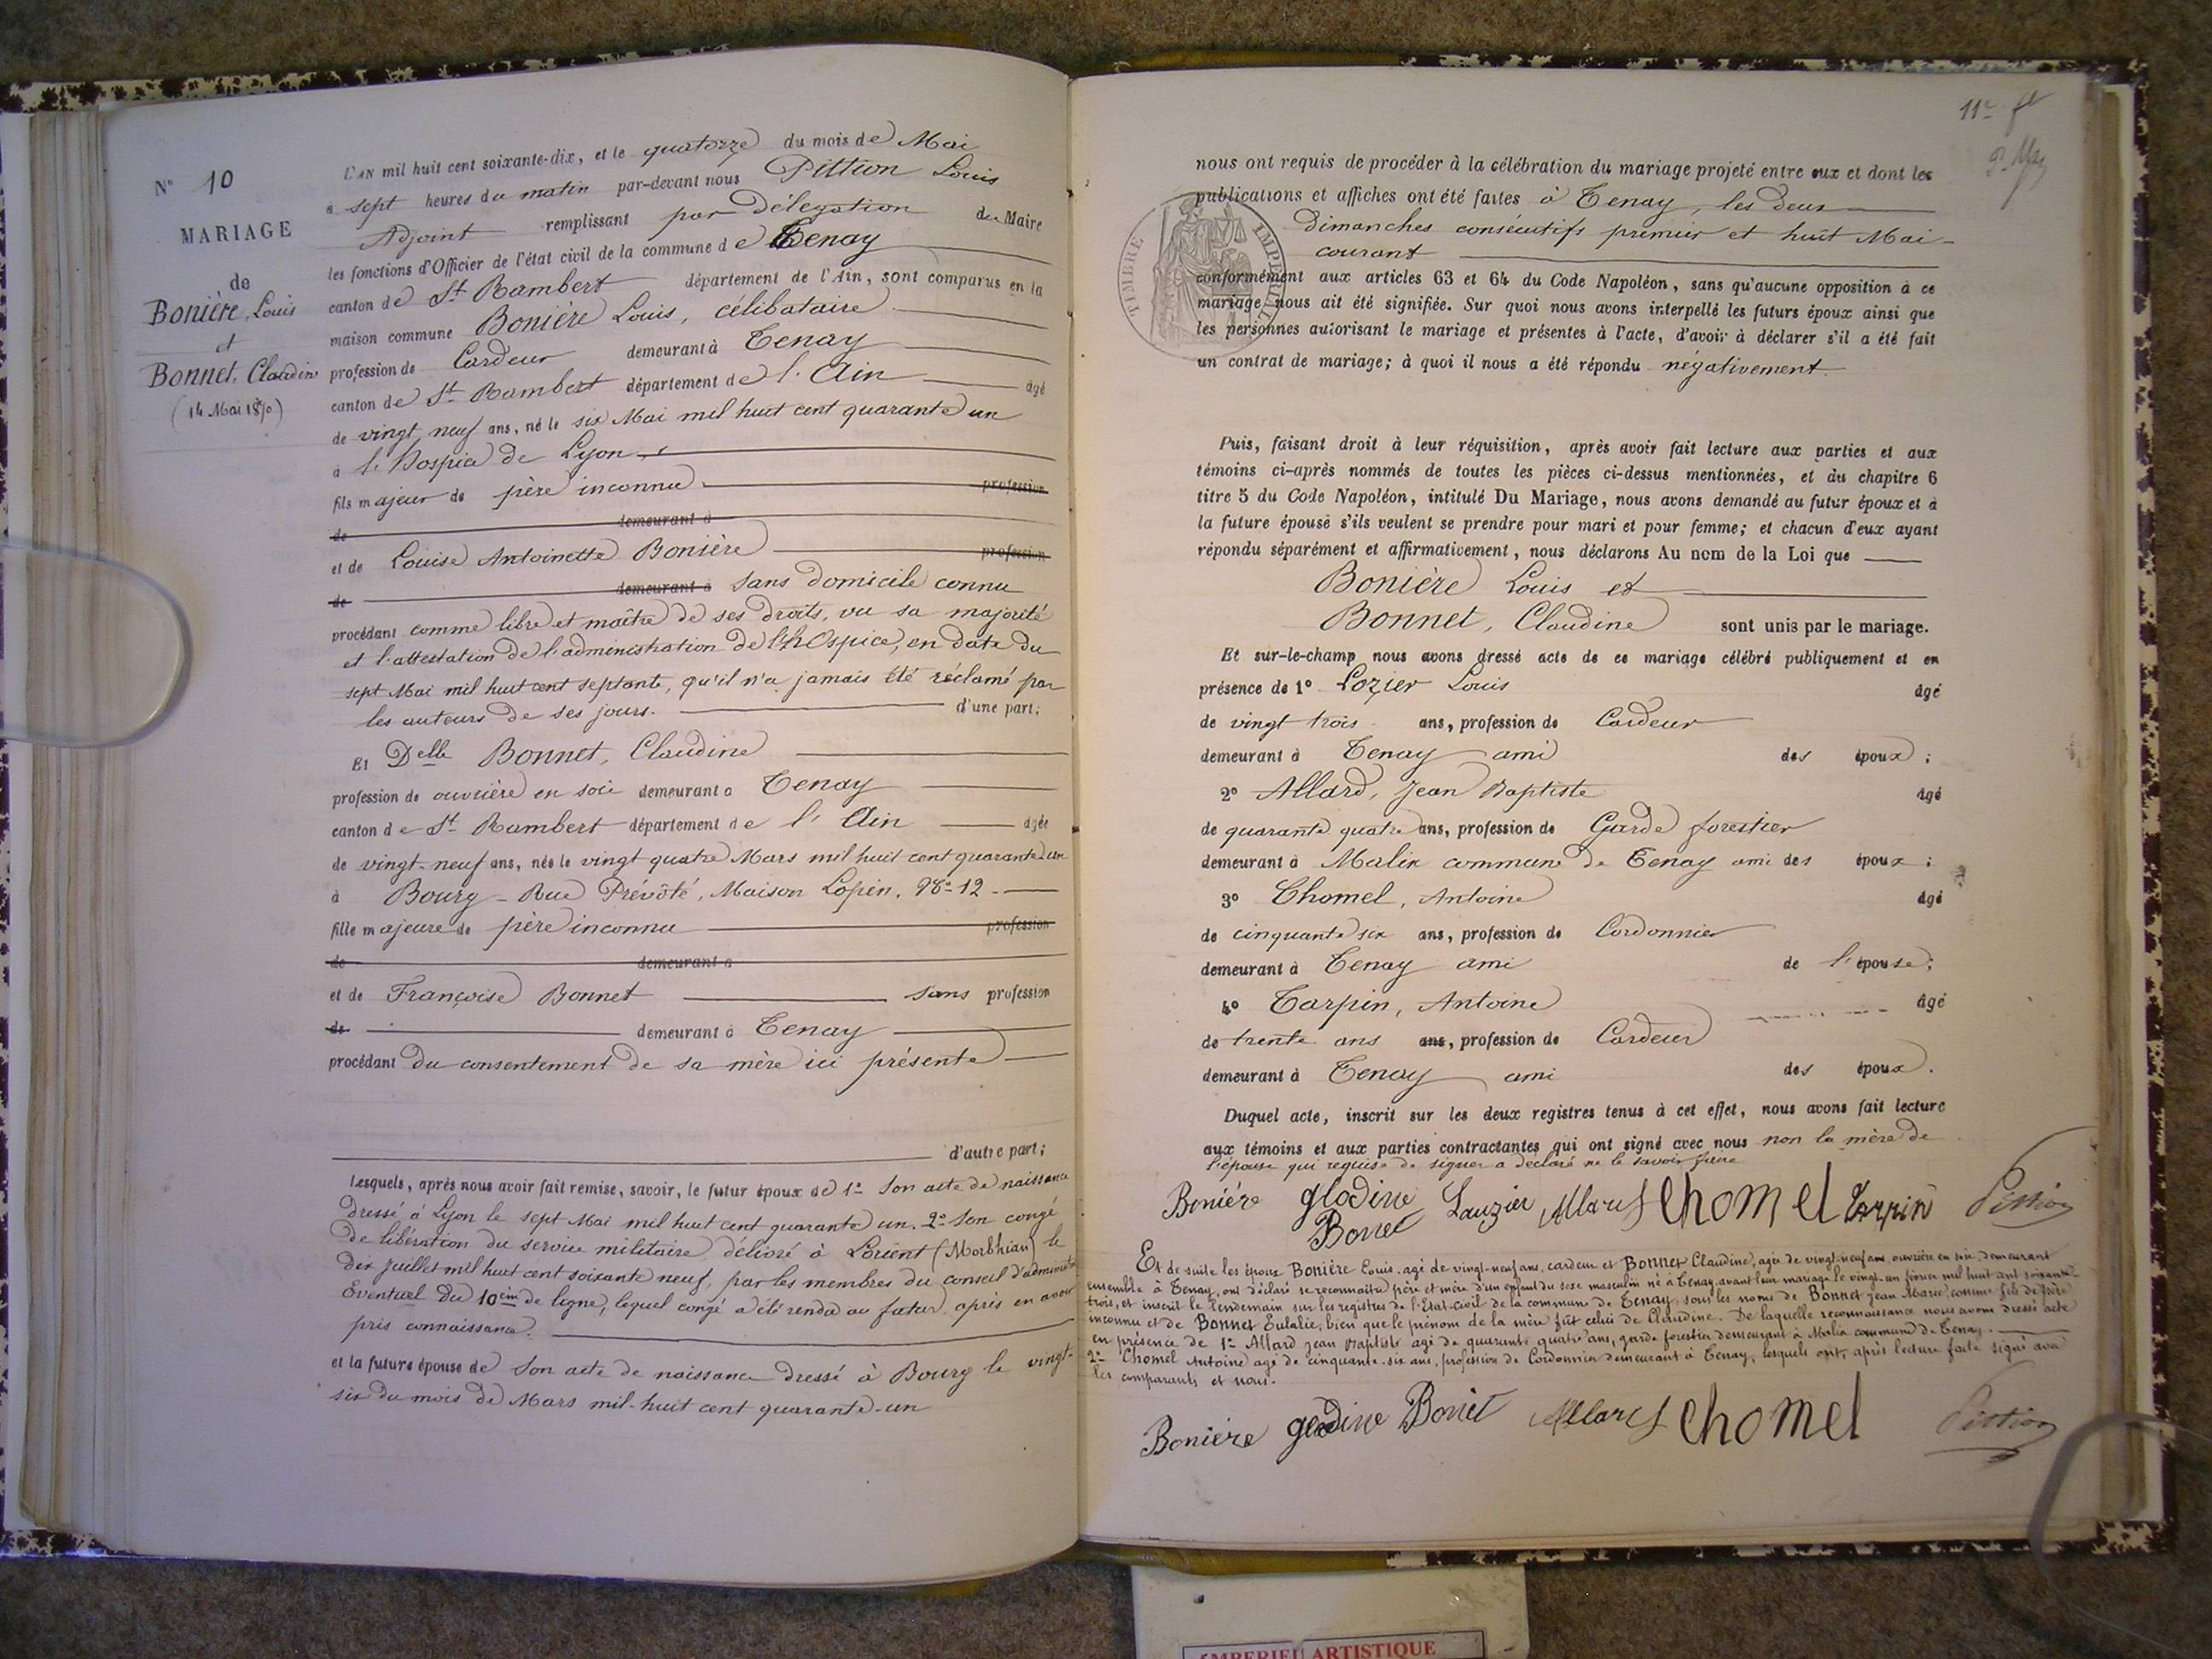 N° 10
MARIAGE
de
Bonière, Louis
et
Bonnet, Claudine
(14 Mai 1870)
L'AN mil huit cent soixante-dix, et le quatorze du mois de Mai
à sept heures du matin par-devant nous Pittion Louis
Adjoint remplissant par Délégation du Maire
les fonctions d'Officier de l'état civil de la commune de Tenay
canton de St Rambert département de l'Ain, sont comparus en la
maison commune Bonière Louis, célibataire
profession de Cardeur demeurant à Tenay
canton de St Rambert département de l'Ain âgé
de vingt neuf ans, né le six Mai mil huit cent quarante un
à l'hospice de Lyon
fils majeur de père inconnu profession
de demeurant à
et de Louise Antoinette Bonière profession
de demeurant à sans domicile connu
procédant comme libre et maître de ses droits, vu sa majorité
et l'attestation de l'administration de l'hospice, en date du
sept Mai mil huit cent septante, qu'il n'a jamais été réclamé par
les auteurs de ses jours. d'une part;
Et Delle Bonnet, Claudine
profession de ouvrière en soie demeurant à Tenay
canton de St Rambert département de l'Ain âgée
de vingt-neuf ans, née le vingt quatre Mars mil huit cent quarante un
à Bourg - Rue Prévôté, Maison Lopin, No 12
fille majeure de père inconnu profession
de demeurant à
et de Françoise Bonnet sans profession
de demeurant à Tenay
procédant du consentement de sa mère ici présente
d'autre part;
Lesquels, après nous avoir fait remise, savoir, le futur époux de 1° Son acte de naissance
dressé à Lyon le sept Mai mil huit cent quarante un. 2° Son congé
de libération du service militaire délivré à Lorient (Morbhian) le
dix juillet mil huit cent soixante neuf, par les membres du conseil d'administr
Eventuel du 10ème de ligne, lequel congé a été rendu au futur, après en avoir
pris connaissance.
et la future épouse de Son acte de naissance dressé à Bourg le vingt-
six du mois de Mars mil-huit cent quarante-un
11e ft
nous ont requis de procéder à la célébration du mariage projeté entre eux et dont les
publications et affiches ont été faites à Tenay, les deux
Dimanches consécutifs premier et huit Mai
courant
TIMBRE IMPÉRIAL
conformément aux articles 63 et 64 du Code Napoléon, sans qu'aucune opposition à ce
mariage nous ait été signifiée. Sur quoi nous avons interpellé les futurs époux ainsi que
les personnes autorisant le mariage et présentes à l'acte, d'avoir à déclarer s'il a été fait
un contrat de mariage; à quoi il nous a été répondu négativement.
Puis, faisant droit à leur réquisition, après avoir fait lecture aux parties et aux
témoins ci-après nommés de toutes les pièces ci-dessus mentionnées, et du chapitre 6
titre 5 du Code Napoléon, intitulé Du Mariage, nous avons demandé au futur époux et à
la future épouse s'ils veulent se prendre pour mari et pour femme; et chacun d'eux ayant
répondu séparément et affirmativement, nous déclarons Au nom de la Loi que
Bonière Louis et
Bonnet, Claudine sont unis par le mariage.
Et sur-le-champ nous avons dressé acte de ce mariage célébré publiquement et en
présence de 1° Lozier Louis âgé
de vingt trois ans, profession de Cardeur
demeurant à Tenay ami des époux;
2° Allard, Jean Baptiste âgé
de quarante quatre ans, profession de Garde forestier
demeurant à Malix commune de Tenay ami des époux;
3° Chomel, Antoine âgé
de cinquante six ans, profession de Cordonnier
demeurant à Tenay ami de l'épouse;
4° Tarpin, Antoine âgé
de trente ans ans, profession de Cardeur
demeurant à Tenay ami des époux.
Duquel acte, inscrit sur les deux registres tenus à cet effet, nous avons fait lecture
aux témoins et aux parties contractantes qui ont signé avec nous non la mère de
l'épouse qui requise de signer a déclaré ne le savoir faire
Boniére glodine Bonet Lauzier Allard Chomel Tarpin Pittion
Et de suite les époux Bonière Louis, agé de vingt-neuf ans, cardeur et Bonnet Claudine, agée de vingt-neuf ans ouvrière en soie, demeurant
ensemble à Tenay, ont déclaré se reconnaître père et mère d'un enfant du sexe masculin né à Tenay, avant leur mariage le vingt-un février mil huit cent soixante-
trois, et inscrit le lendemain sur les registres de l'Etat-civil de la commune de Tenay, sous les noms de Bonnet Jean Marie, comme fils de père
inconnu et de Bonnet Eulalie, bien que le prénom de la mère fut celui de Claudine. De laquelle reconnaissance nous avons dressé acte
en présence de 1° Allard Jean Baptiste agé de quarante quatre ans, garde forestier demeurant à Malix commune de Tenay.
2° Chomel Antoine agé de cinquante-six ans, profession de Cordonnier demeurant à Tenay, lesquels ont, après lecture faite signé avec
les comparants et nous.
Boniére glodine Bonet Allard Chomel Pittion
AMBERIEU ARTISTIQUE